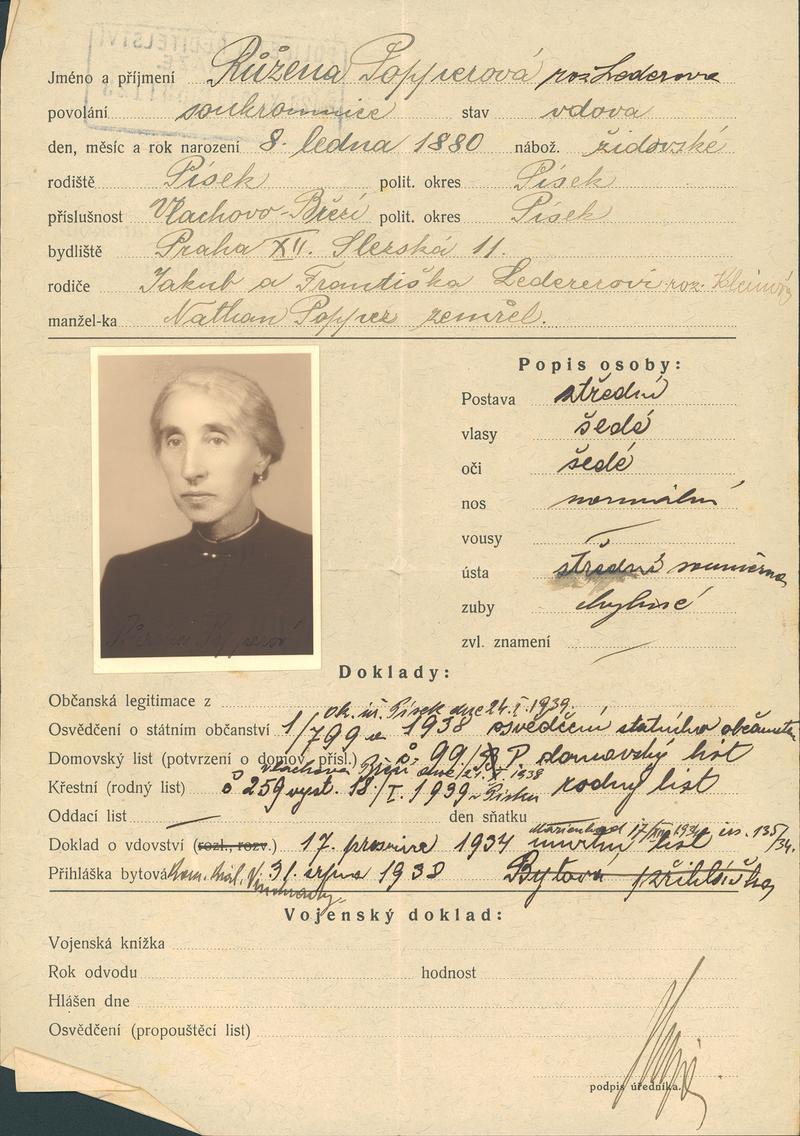 Jméno a příjmení Růžena Popperová roz Lederova
povolání soukromnice stav vdova
den, měsíc a rok narození 8. ledna 1880 nábož. židovské
rodiště Písek polit. okres Písek
příslušnost Vlachovo-Březí polit. okres Písek
bydliště Praha XII. Slezská 11.
rodiče Jakub a Františka Ledererovi roz. Kleinova
manžel-ka Nathan Popper zemřel.
Popis osoby:
Postava střední
vlasy šedé
oči šedé
nos normální
vousy
ústa středné souměrna
zuby chybné
zvl. znamení
Růžena Popperová
Doklady:
Občanská legitimace z
ok. úř. Písek dne 24. I. 1939.
Osvědčení o státním občanství 1/799 1938 osvědčení statniho občanstv
Domovský list (potvrzení o domov. přísl.) č. 99/ P. domovský list
Vlachovo Březí dne 1938
Křestní (rodný list) č 259 vyst. 18/I. 1939 v Písku rodný list
Oddací list den sňatku
Marienbad 17/XII 1934 135/34.
Doklad o vdovství (rozl., rozv.) 17. prosince 1934 umrtní list
Přihláška bytová 31. srpna 1938 Bytová přihláška
Vojenský doklad:
Vojenská knížka
Rok odvodu hodnost
Hlášen dne
Osvědčení (propouštěcí list)
podpis úředníka.